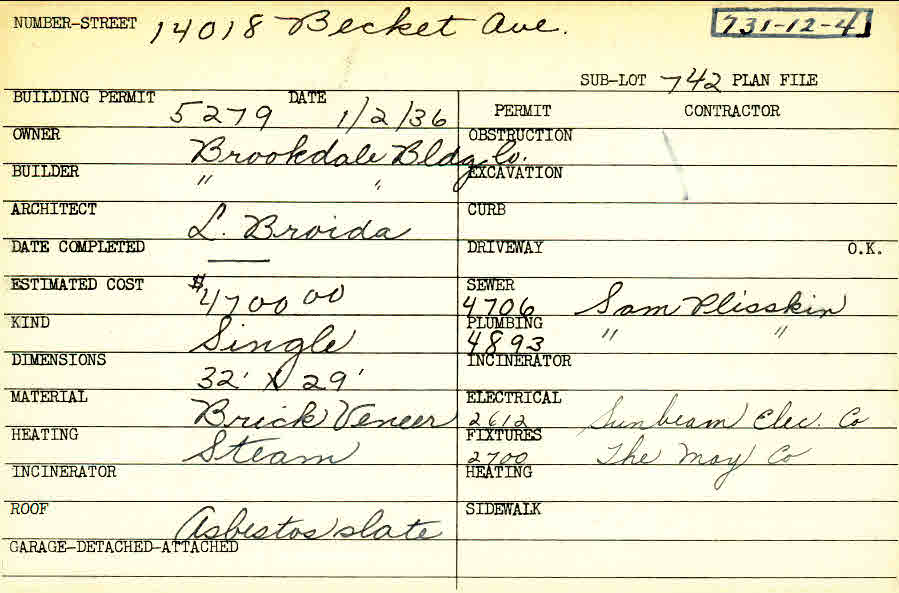 NUMBER-STREET 14018 Becket Ave. 731-12-4
SUB-LOT 742 PLAN FILE
BUILDING PERMIT 5279 DATE 1/2/36
PERMIT CONTRACTOR
OWNER Brookdale Bldg Co.
OBSTRUCTION
BUILDER " "
EXCAVATION
ARCHITECT L. Broida
CURB
DATE COMPLETED —
DRIVEWAY O.K.
ESTIMATED COST $4700 00
SEWER 4706 Sam Plisskin
KIND Single
PLUMBING 4893 " "
DIMENSIONS 32' X 29'
INCINERATOR
MATERIAL Brick Veneer
ELECTRICAL 2612 Sunbeam Elec. Co
HEATING Steam
FIXTURES 2700 The May Co
INCINERATOR
HEATING
ROOF Asbestos slate
SIDEWALK
GARAGE-DETACHED-ATTACHED